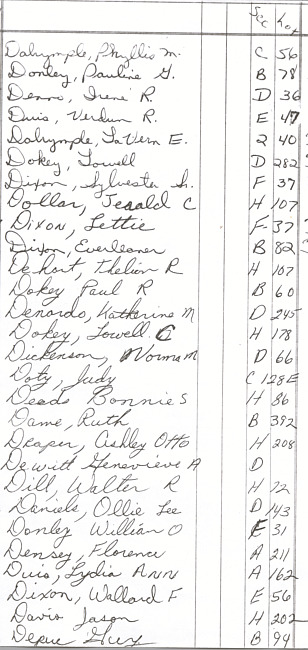 Sec Lot
Dalrymple, Phyllis M. C 56
Donley, Pauline G. B 78
Denno, Irene R. D 36
Duis, Verdun R. E 47
Dalrymple, LaVern E. 2 40
Dokey, Lowell D 282
Dixon, Sylvester H 37
Dollar, Jerald C H 107
Dixon, Lettie F 37
Dixon, Everleaner B 82
Dehart, Thelion R H 107
Dokey Paul R B 60
Denardo, Katherine M D 245
Dokey, Lowell C H 178
Dickenson, Norma M D 66
Doty, Judy C 128E
Deeds Bonnie S H 86
Dame, Ruth B 392
Draper, Ashley Otto H 208
Dewitt Genevieve A D
Dill, Walter R H 72
Daniels, Ollie Lee D 143
Donley William O E 31
Densey, Florence A 211
Duis, Lydia ANN A 162
Dixon, Wallard F E 56
Davis Jason H 202
Depue Guy B 94